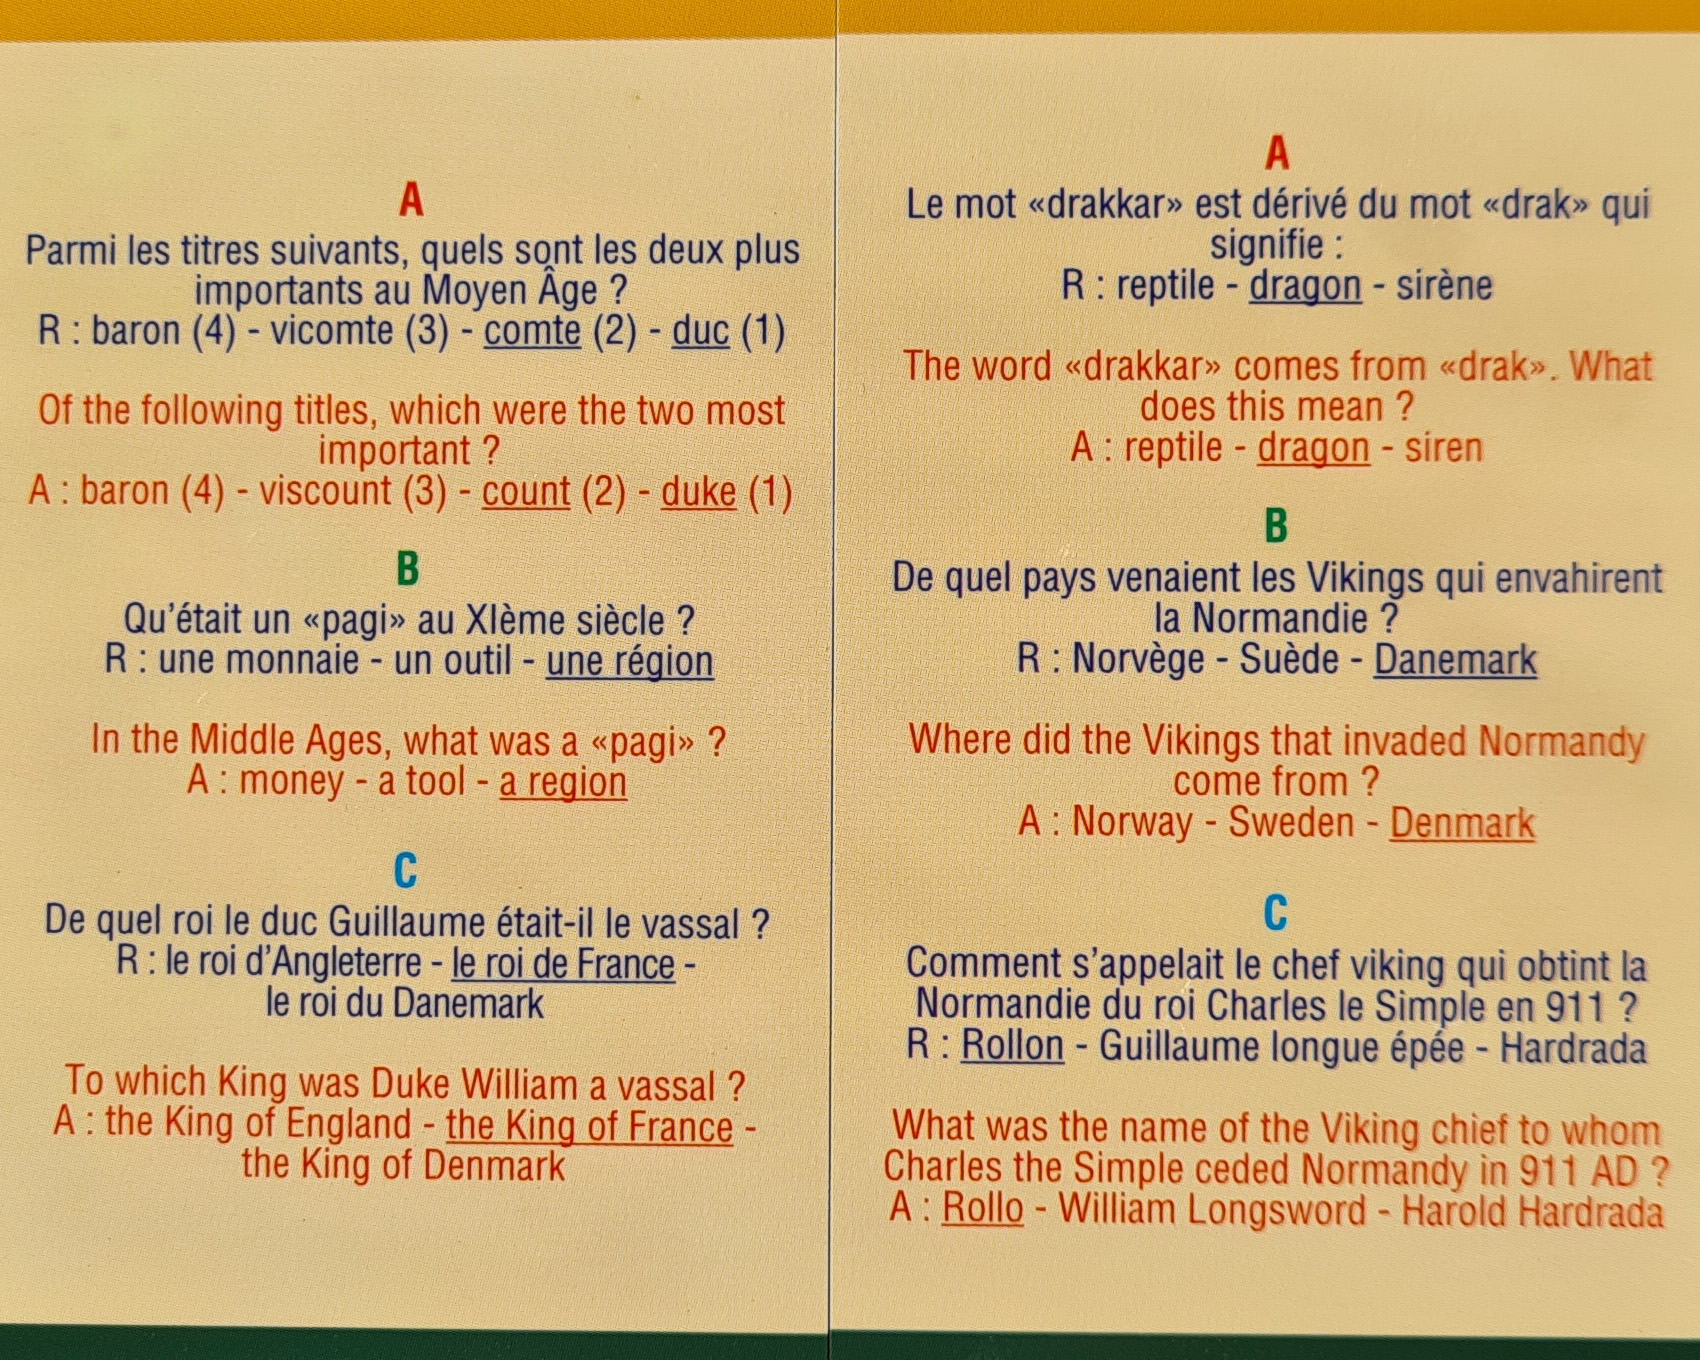 A
Parmi les titres suivants, quels sont les deux plus
importants au Moyen Âge ?
R : baron (4) - vicomte (3) - comte (2) - duc (1)
Of the following titles, which were the two most
important ?
A : baron (4) - viscount (3) - count (2) - duke (1)
B
Qu'était un «pagi» au XIème siècle ?
R : une monnaie - un outil - une région
In the Middle Ages, what was a «pagi» ?
A : money - a tool - a region
C
De quel roi le duc Guillaume était-il le vassal ?
R : le roi d'Angleterre - le roi de France -
le roi du Danemark
To which King was Duke William a vassal ?
A : the King of England - the King of France -
the King of Denmark
A
Le mot «drakkar» est dérivé du mot «drak» qui
signifie :
R : reptile - dragon - sirène
The word «drakkar» comes from «drak». What
does this mean ?
A : reptile - dragon - siren
B
De quel pays venaient les Vikings qui envahirent
la Normandie ?
R : Norvège - Suède - Danemark
Where did the Vikings that invaded Normandy
come from ?
A : Norway - Sweden - Denmark
C
Comment s'appelait le chef viking qui obtint la
Normandie du roi Charles le Simple en 911 ?
R : Rollon - Guillaume longue épée - Hardrada
What was the name of the Viking chief to whom
Charles the Simple ceded Normandy in 911 AD ?
A : Rollo - William Longsword - Harold Hardrada